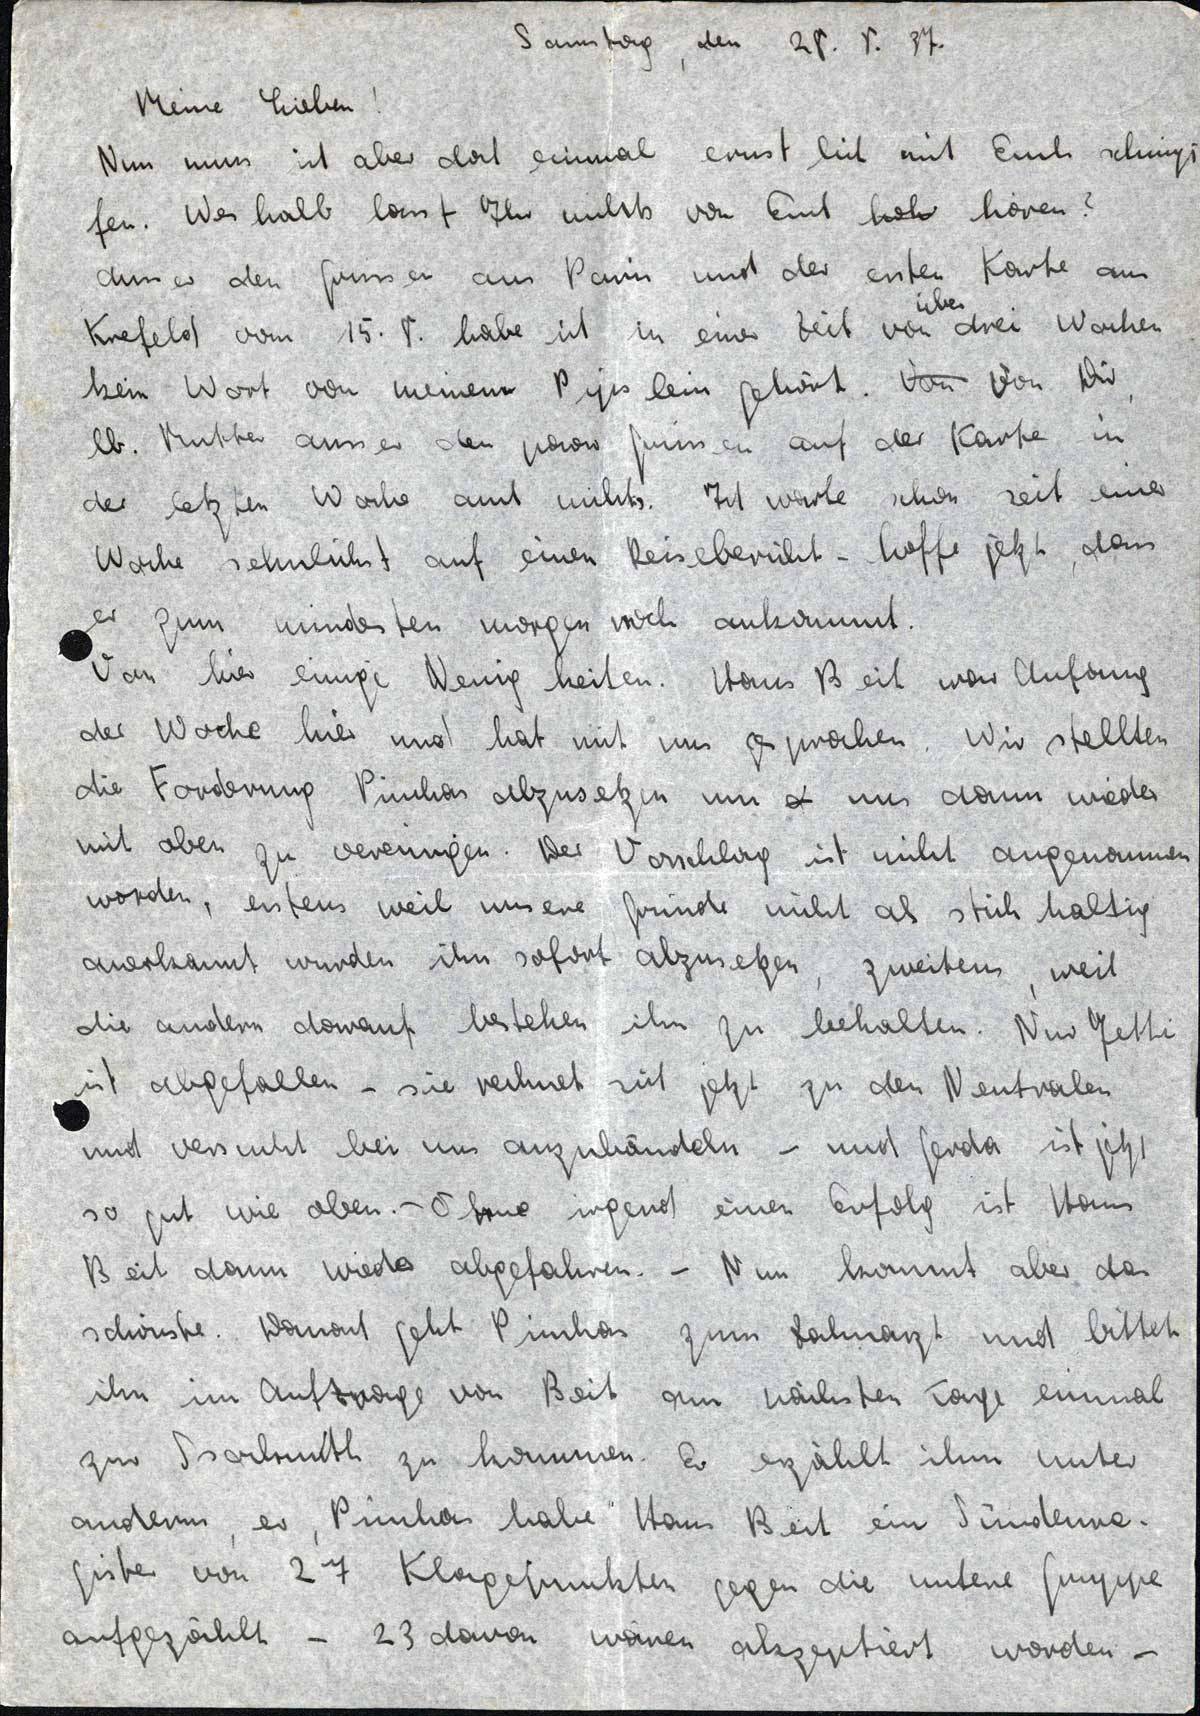 Samstag, den 28. 8. 37.
Meine Lieben!
Nun muss ich aber doch einmal ernstlich mit Euch schimp
fen. Weshalb lasst Ihr nichts von Euch hören?
ausser den Grüssen aus Paris und der ersten Karte aus
Krefeld vom 15. 8. habe ich in einer Zeit von über drei Wochen
kein Wort von meinem gehört. Von Von Dir,
lb. Mutter ausser den paar Grüssen auf der Karte in
der letzten Woche auch nichts. Ich warte schon seit einer
Woche sehnlichst auf einen Reisebericht - hoffe jetzt, dass
er zum mindesten morgen noch ankommt.
Von hier einige Neuigkeiten. Hans Beit war Anfang
der Woche hier und hat mit uns gesprochen. Wir stellten
die Forderung Pinchas abzusetzen um uns dann wieder
mit oben zu vereinigen. Der Vorschlag ist nicht angenommen
worden, erstens weil unsere Gründe nicht als stichhaltig
anerkannt wurden ihn sofort abzusetzen, zweitens, weil
die andern darauf bestehen ihn zu behalten. Nur Jetti
ist abgefallen - sie rechnet sich jetzt zu den Neutralen
und versucht bei uns anzubändeln - und Gerda ist jetzt
so gut wie oben. - Ohne irgend einen Erfolg ist Hans
Beit dann wieder abgefahren. - Nun kommt aber das
schönste. Danach geht Pinchas zum Zahnarzt und bittet
ihn im Auftrage von Beit am nächsten Tage einmal
zur zu kommen. Er erzählt ihm unter
anderm, er, Pinchas habe Hans Beit ein Sündenre-
gister von 27 Klagepunkten gegen die untere Gruppe
aufgezählt - 23 davon wären akzeptiert worden -